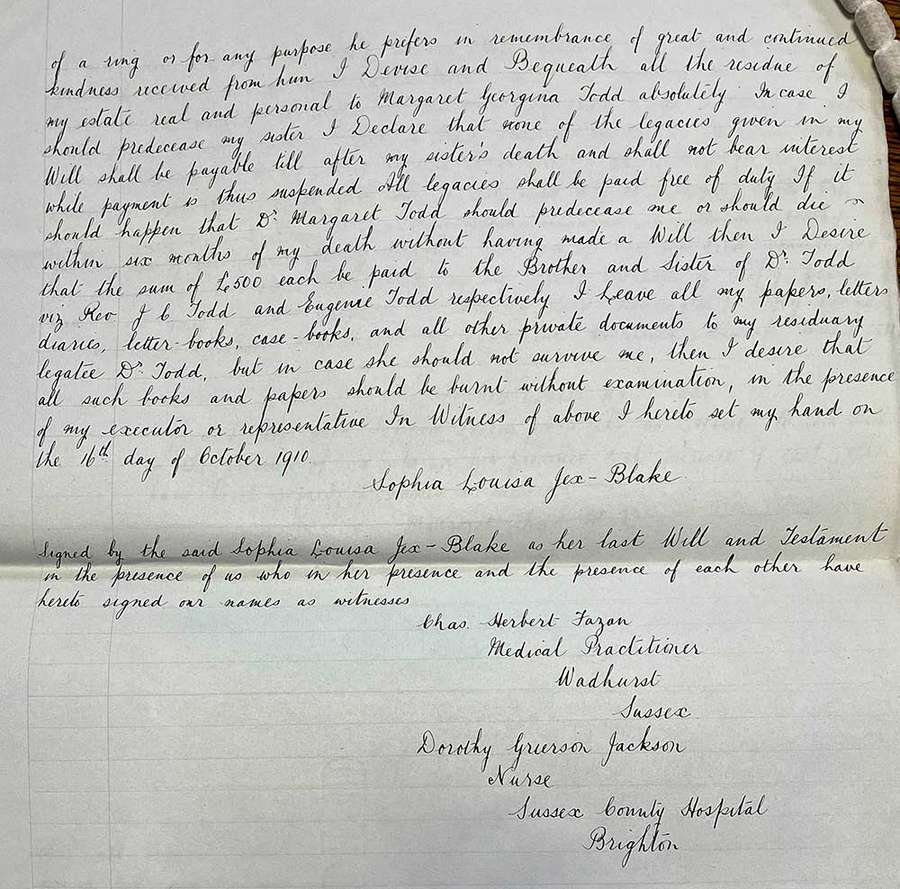 of a ring or for any purpose he prefers in remembrance of great and continued
kindness received from him I Devise and Bequeath all the residue of
my estate real and personal to Margaret Georgina Todd absolutely In case I
should predecease my sister I Declare that none of the legacies given in my
Will shall be payable till after my sister's death and shall not bear interest
while payment is thus suspended All legacies shall be paid free of duty If it
should happen that Dr. Margaret Todd should predecease me or should die
within six months of my death without having made a Will then I Desire
that the sum of £500 each be paid to the Brother and Sister of Dr. Todd
viz Rev J C Todd and Eugenie Todd respectively I Leave all my papers, letters
diaries, letter-books, case-books, and all other private documents to my residuary
legatee Dr. Todd, but in case she should not survive me, then I desire that
all such books and papers should be burnt without examination, in the presence
of my executor or representative In Witness of above I hereto set my hand on
the 16th day of October 1910.
Sophia Louisa Jex-Blake
Signed by the said Sophia Louisa Jex-Blake as her last Will and Testament
in the presence of us who in her presence and the presence of each other have
hereto signed our names as witnesses
Chas. Herbert Fazan
Medical Practitioner
Wadhurst
Sussex
Dorothy Grierson Jackson
Nurse
Sussex County Hospital
Brighton